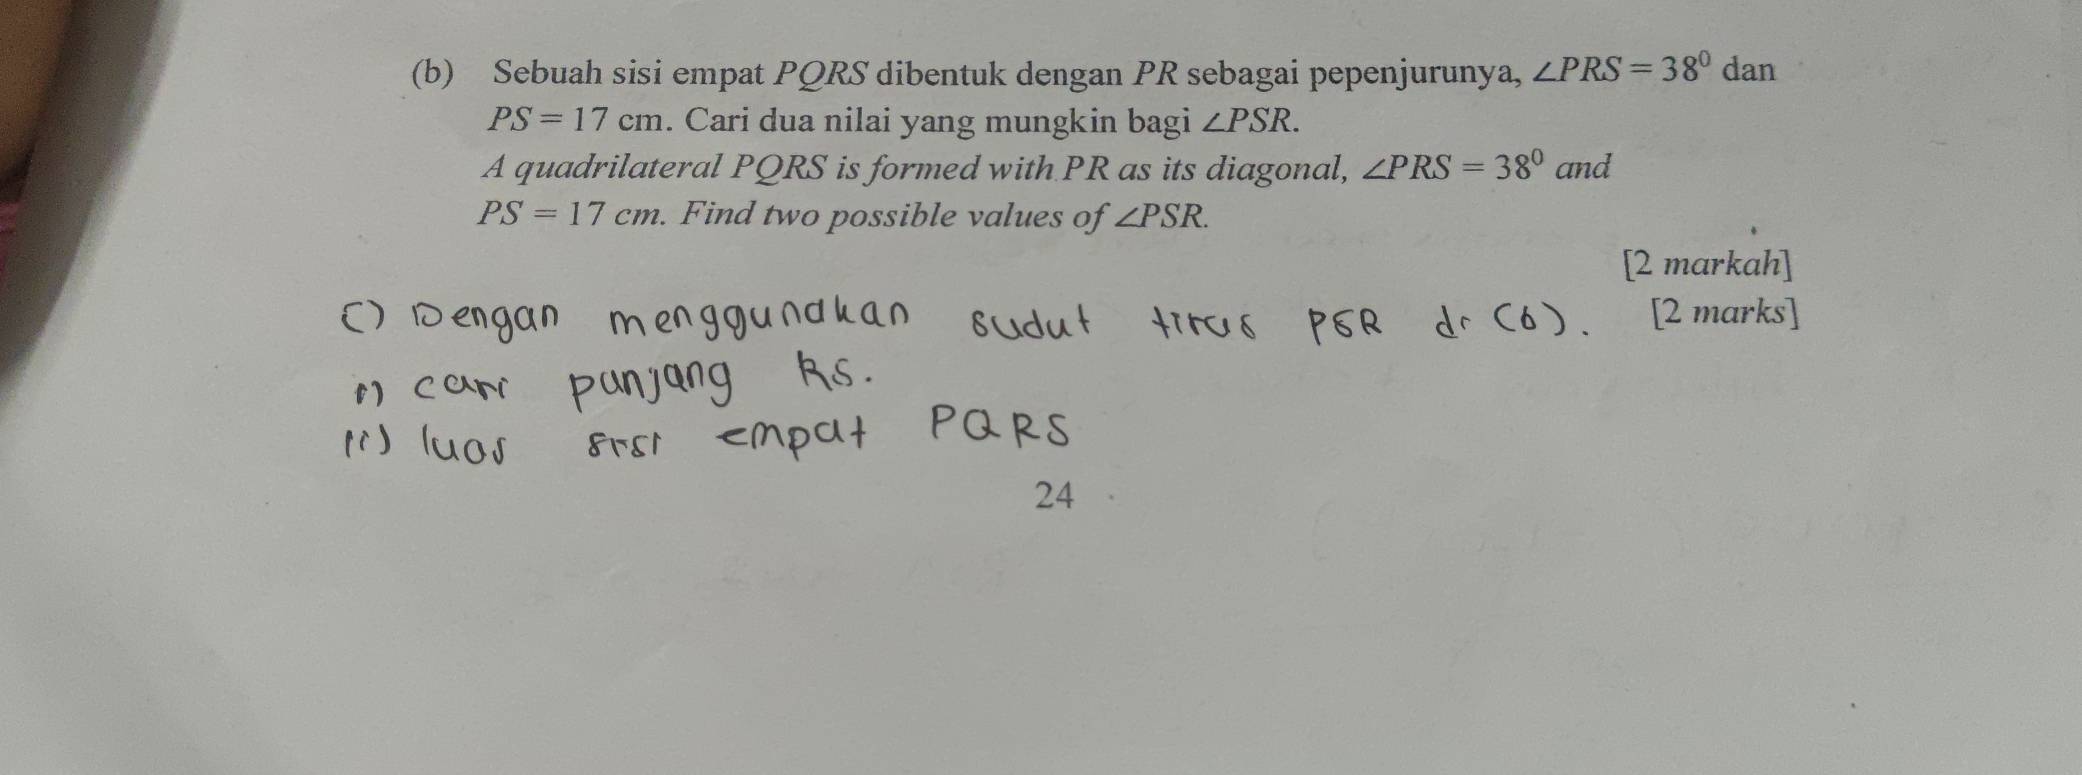 (b) Sebuah sisi empat PQRS dibentuk dengan PR sebagai pepenjurunya, ∠PRS = 38⁰ dan
PS = 17 cm. Cari dua nilai yang mungkin bagi ∠PSR.
A quadrilateral PQRS is formed with PR as its diagonal, ∠PRS = 38⁰ and
PS = 17 cm. Find two possible values of ∠PSR.
[2 markah]
[2 marks]
c) Dengan menggunakan sudut tirus PSR di (b).
i) cari panjang RS.
ii) luas sisi empat PQRS
24